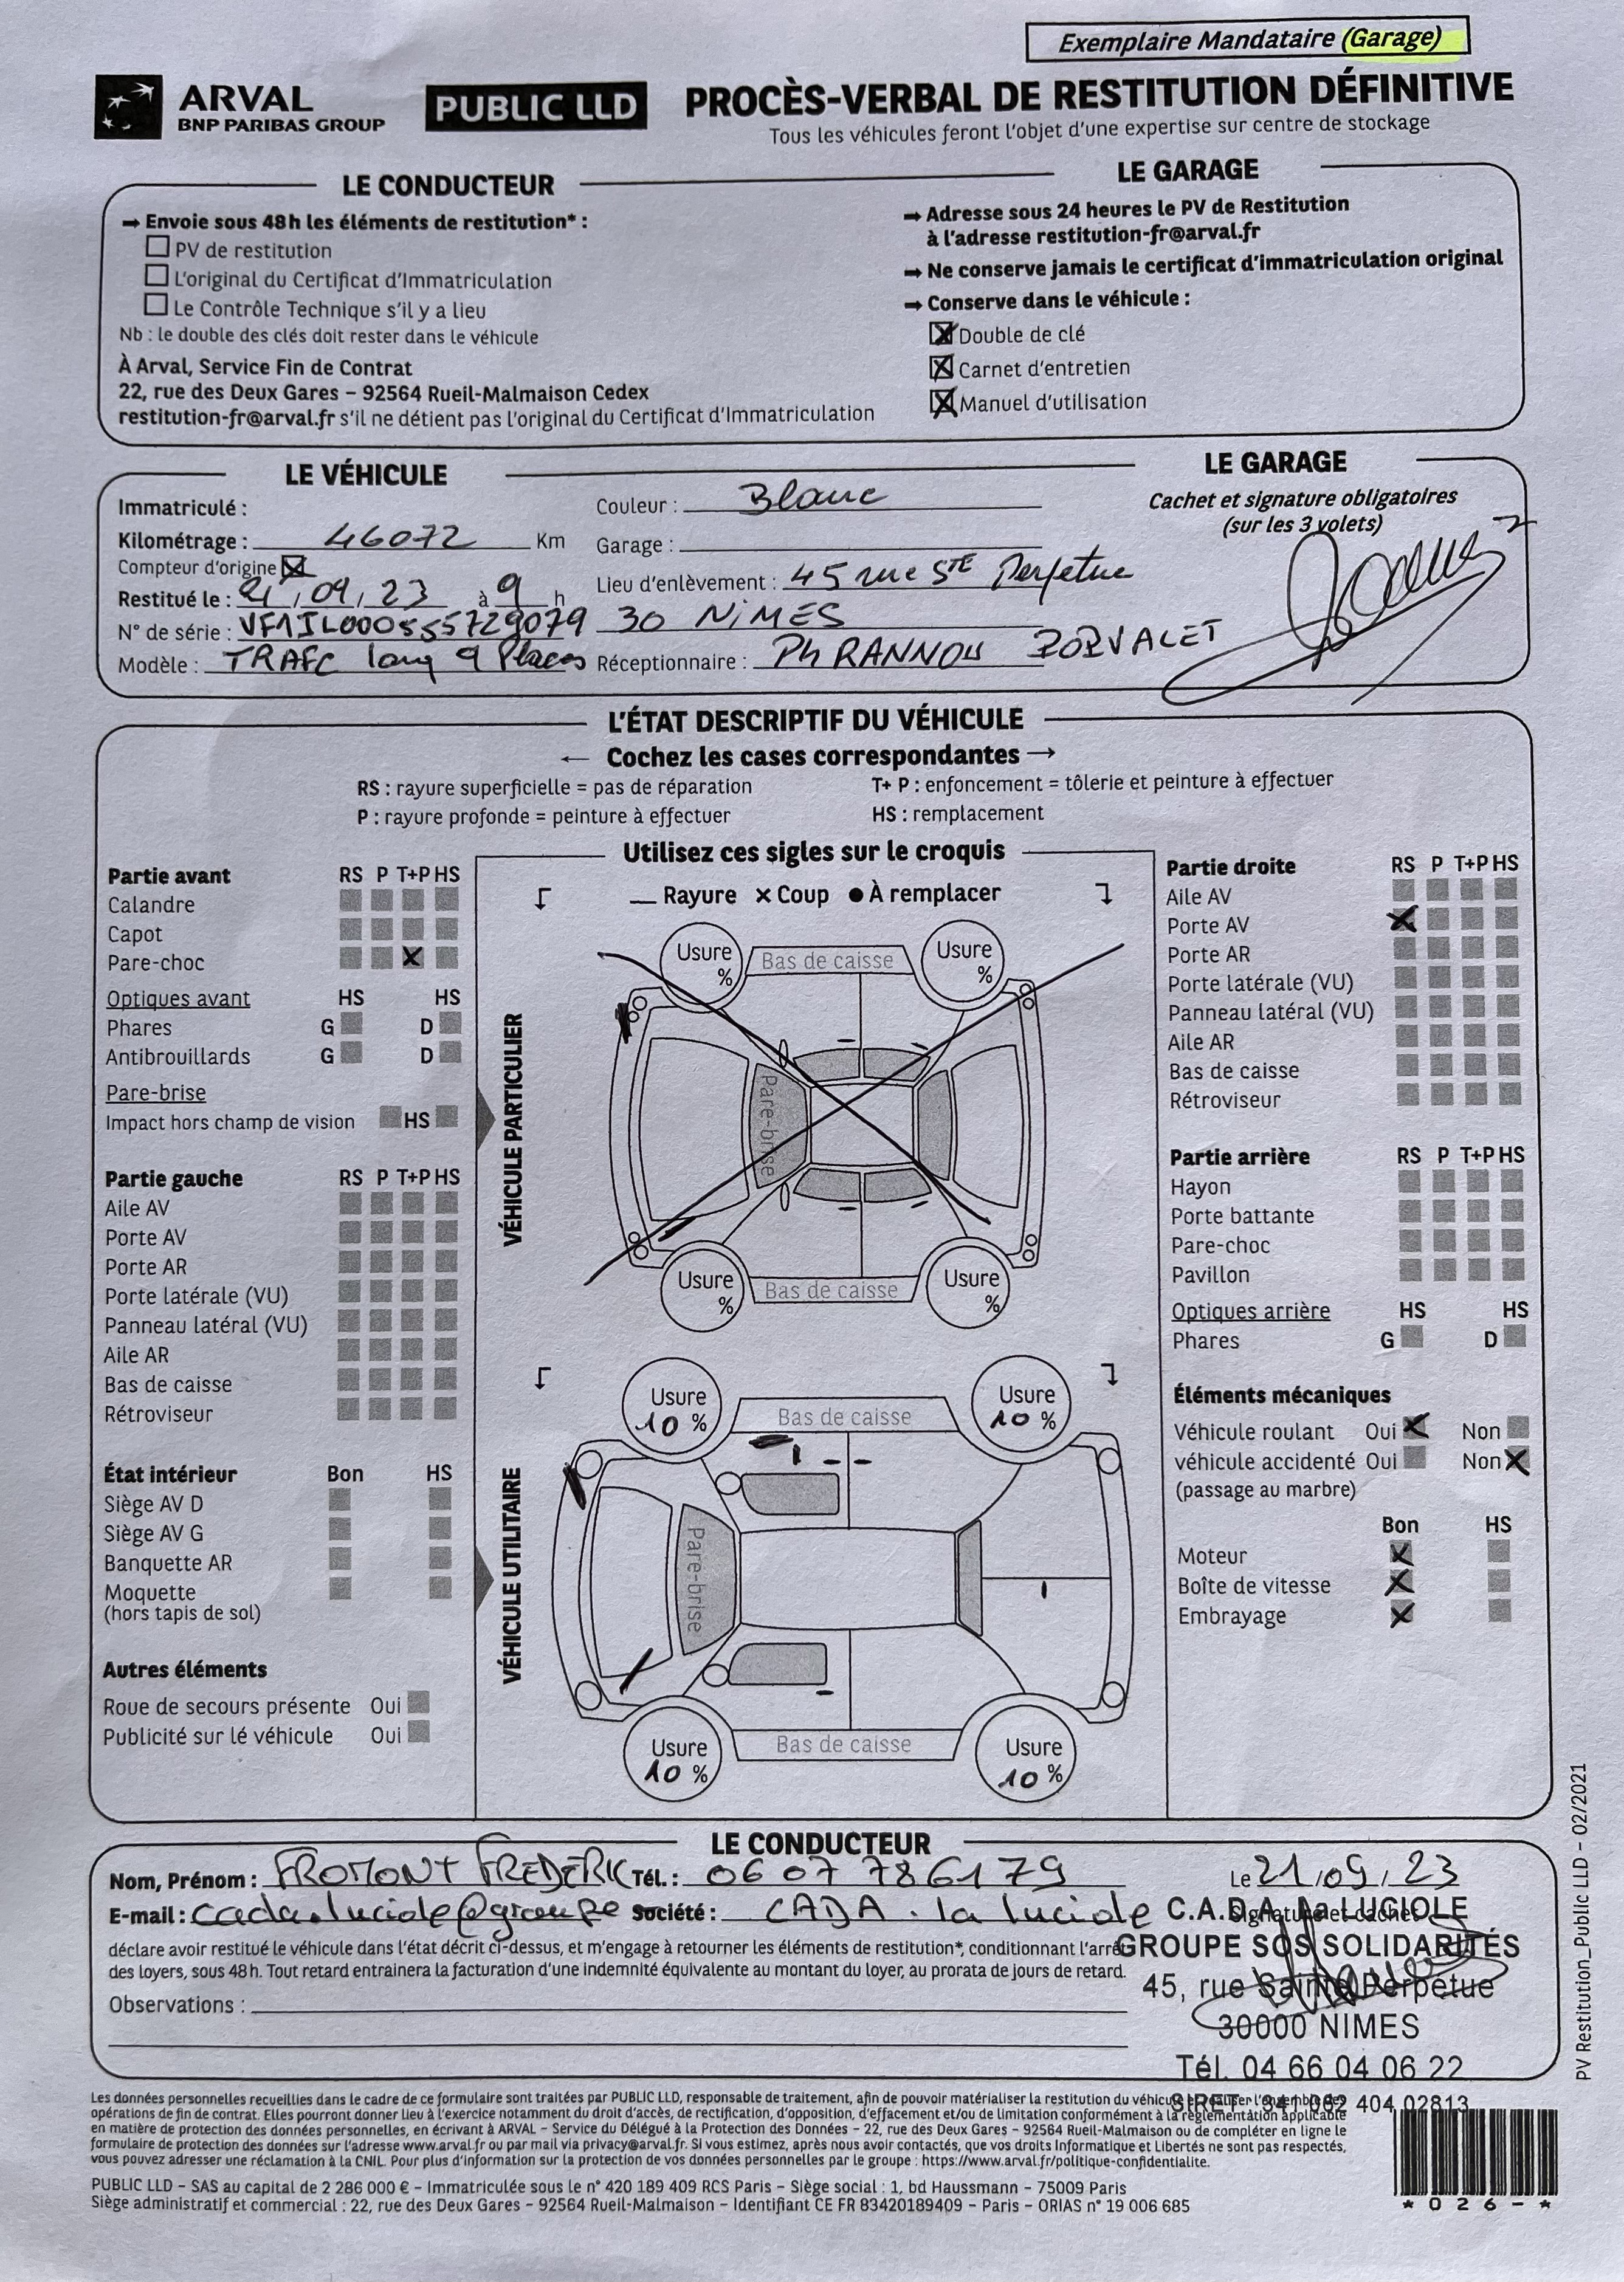 Exemplaire Mandataire (Garage)
ARVAL
BNP PARIBAS GROUP
PUBLIC LLD
PROCÈS-VERBAL DE RESTITUTION DÉFINITIVE
Tous les véhicules feront l'objet d'une expertise sur centre de stockage
LE CONDUCTEUR
→ Envoie sous 48h les éléments de restitution* :
PV de restitution
L'original du Certificat d'Immatriculation
Le Contrôle Technique s'il y a lieu
Nb : le double des clés doit rester dans le véhicule
À Arval, Service Fin de Contrat
22, rue des Deux Gares – 92564 Rueil-Malmaison Cedex
restitution-fr@arval.fr s'il ne détient pas l'original du Certificat d'Immatriculation
LE GARAGE
→ Adresse sous 24 heures le PV de Restitution
à l'adresse restitution-fr@arval.fr
→ Ne conserve jamais le certificat d'immatriculation original
→ Conserve dans le véhicule :
Double de clé
Carnet d'entretien
Manuel d'utilisation
LE VÉHICULE
Immatriculé :
Kilométrage : 46072 Km
Compteur d'origine
Restitué le : 21/09/23 à 9 h
N° de série : VF1JL000555729079
Modèle : TRAFC long 9 Places
Couleur : Blanc
Garage :
Lieu d'enlèvement : 45 rue STE Perpetue
30 NIMES
Réceptionnaire : Ph RANNOU
LE GARAGE
Cachet et signature obligatoires
(sur les 3 volets)
L'ÉTAT DESCRIPTIF DU VÉHICULE
← Cochez les cases correspondantes →
RS : rayure superficielle = pas de réparation
P : rayure profonde = peinture à effectuer
T+ P : enfoncement = tôlerie et peinture à effectuer
HS : remplacement
Partie avant RS P T+P HS
Calandre
Capot
Pare-choc
Optiques avant HS HS
Phares G D
Antibrouillards G D
Pare-brise
Impact hors champ de vision HS
Partie gauche RS P T+P HS
Aile AV
Porte AV
Porte AR
Porte latérale (VU)
Panneau latéral (VU)
Aile AR
Bas de caisse
Rétroviseur
État intérieur Bon HS
Siège AV D
Siège AV G
Banquette AR
Moquette
(hors tapis de sol)
Autres éléments
Roue de secours présente Oui
Publicité sur lé véhicule Oui
Utilisez ces sigles sur le croquis
— Rayure × Coup ● À remplacer
VÉHICULE PARTICULIER
Usure % Bas de caisse Usure %
Pare-brise
Usure % Bas de caisse Usure %
VÉHICULE UTILITAIRE
Usure 10 % Bas de caisse Usure 10 %
Pare-brise
Usure 10 % Bas de caisse Usure 10 %
Partie droite RS P T+P HS
Aile AV
Porte AV
Porte AR
Porte latérale (VU)
Panneau latéral (VU)
Aile AR
Bas de caisse
Rétroviseur
Partie arrière RS P T+P HS
Hayon
Porte battante
Pare-choc
Pavillon
Optiques arrière HS HS
Phares G D
Éléments mécaniques
Véhicule roulant Oui Non
véhicule accidenté Oui Non
(passage au marbre)
Bon HS
Moteur
Boîte de vitesse
Embrayage
LE CONDUCTEUR
Nom, Prénom : FROMONT FREDERIK Tél. : 06 07 78 61 79
Le 21/09/23
E-mail : cada.luciole@groupe Société : CADA . la luciole
Signature et cachet
C.A.D.A. La LUCIOLE
GROUPE SOS SOLIDARITÉS
45, rue Sainte Perpetue
30000 NIMES
Tél. 04 66 04 06 22
SIRET : 341 062 404 02813
déclare avoir restitué le véhicule dans l'état décrit ci-dessus, et m'engage à retourner les éléments de restitution*, conditionnant l'arrêt
des loyers, sous 48h. Tout retard entrainera la facturation d'une indemnité équivalente au montant du loyer, au prorata de jours de retard.
Observations :
Les données personnelles recueillies dans le cadre de ce formulaire sont traitées par PUBLIC LLD, responsable de traitement, afin de pouvoir matérialiser la restitution du véhicule et réaliser l'ensemble des
opérations de fin de contrat. Elles pourront donner lieu à l'exercice notamment du droit d'accès, de rectification, d'opposition, d'effacement et/ou de limitation conformément à la règlementation applicable
en matière de protection des données personnelles, en écrivant à ARVAL - Service du Délégué à la Protection des Données - 22, rue des Deux Gares - 92564 Rueil-Malmaison ou de compléter en ligne le
formulaire de protection des données sur l'adresse www.arval.fr ou par mail via privacy@arval.fr. Si vous estimez, après nous avoir contactés, que vos droits Informatique et Libertés ne sont pas respectés,
vous pouvez adresser une réclamation à la CNIL. Pour plus d'information sur la protection de vos données personnelles par le groupe : https://www.arval.fr/politique-confidentialite.
PUBLIC LLD – SAS au capital de 2 286 000 € – Immatriculée sous le n° 420 189 409 RCS Paris – Siège social : 1, bd Haussmann – 75009 Paris
Siège administratif et commercial : 22, rue des Deux Gares – 92564 Rueil-Malmaison – Identifiant CE FR 83420189409 – Paris – ORIAS n° 19 006 685
*026-*
PV Restitution_Public LLD – 02/2021